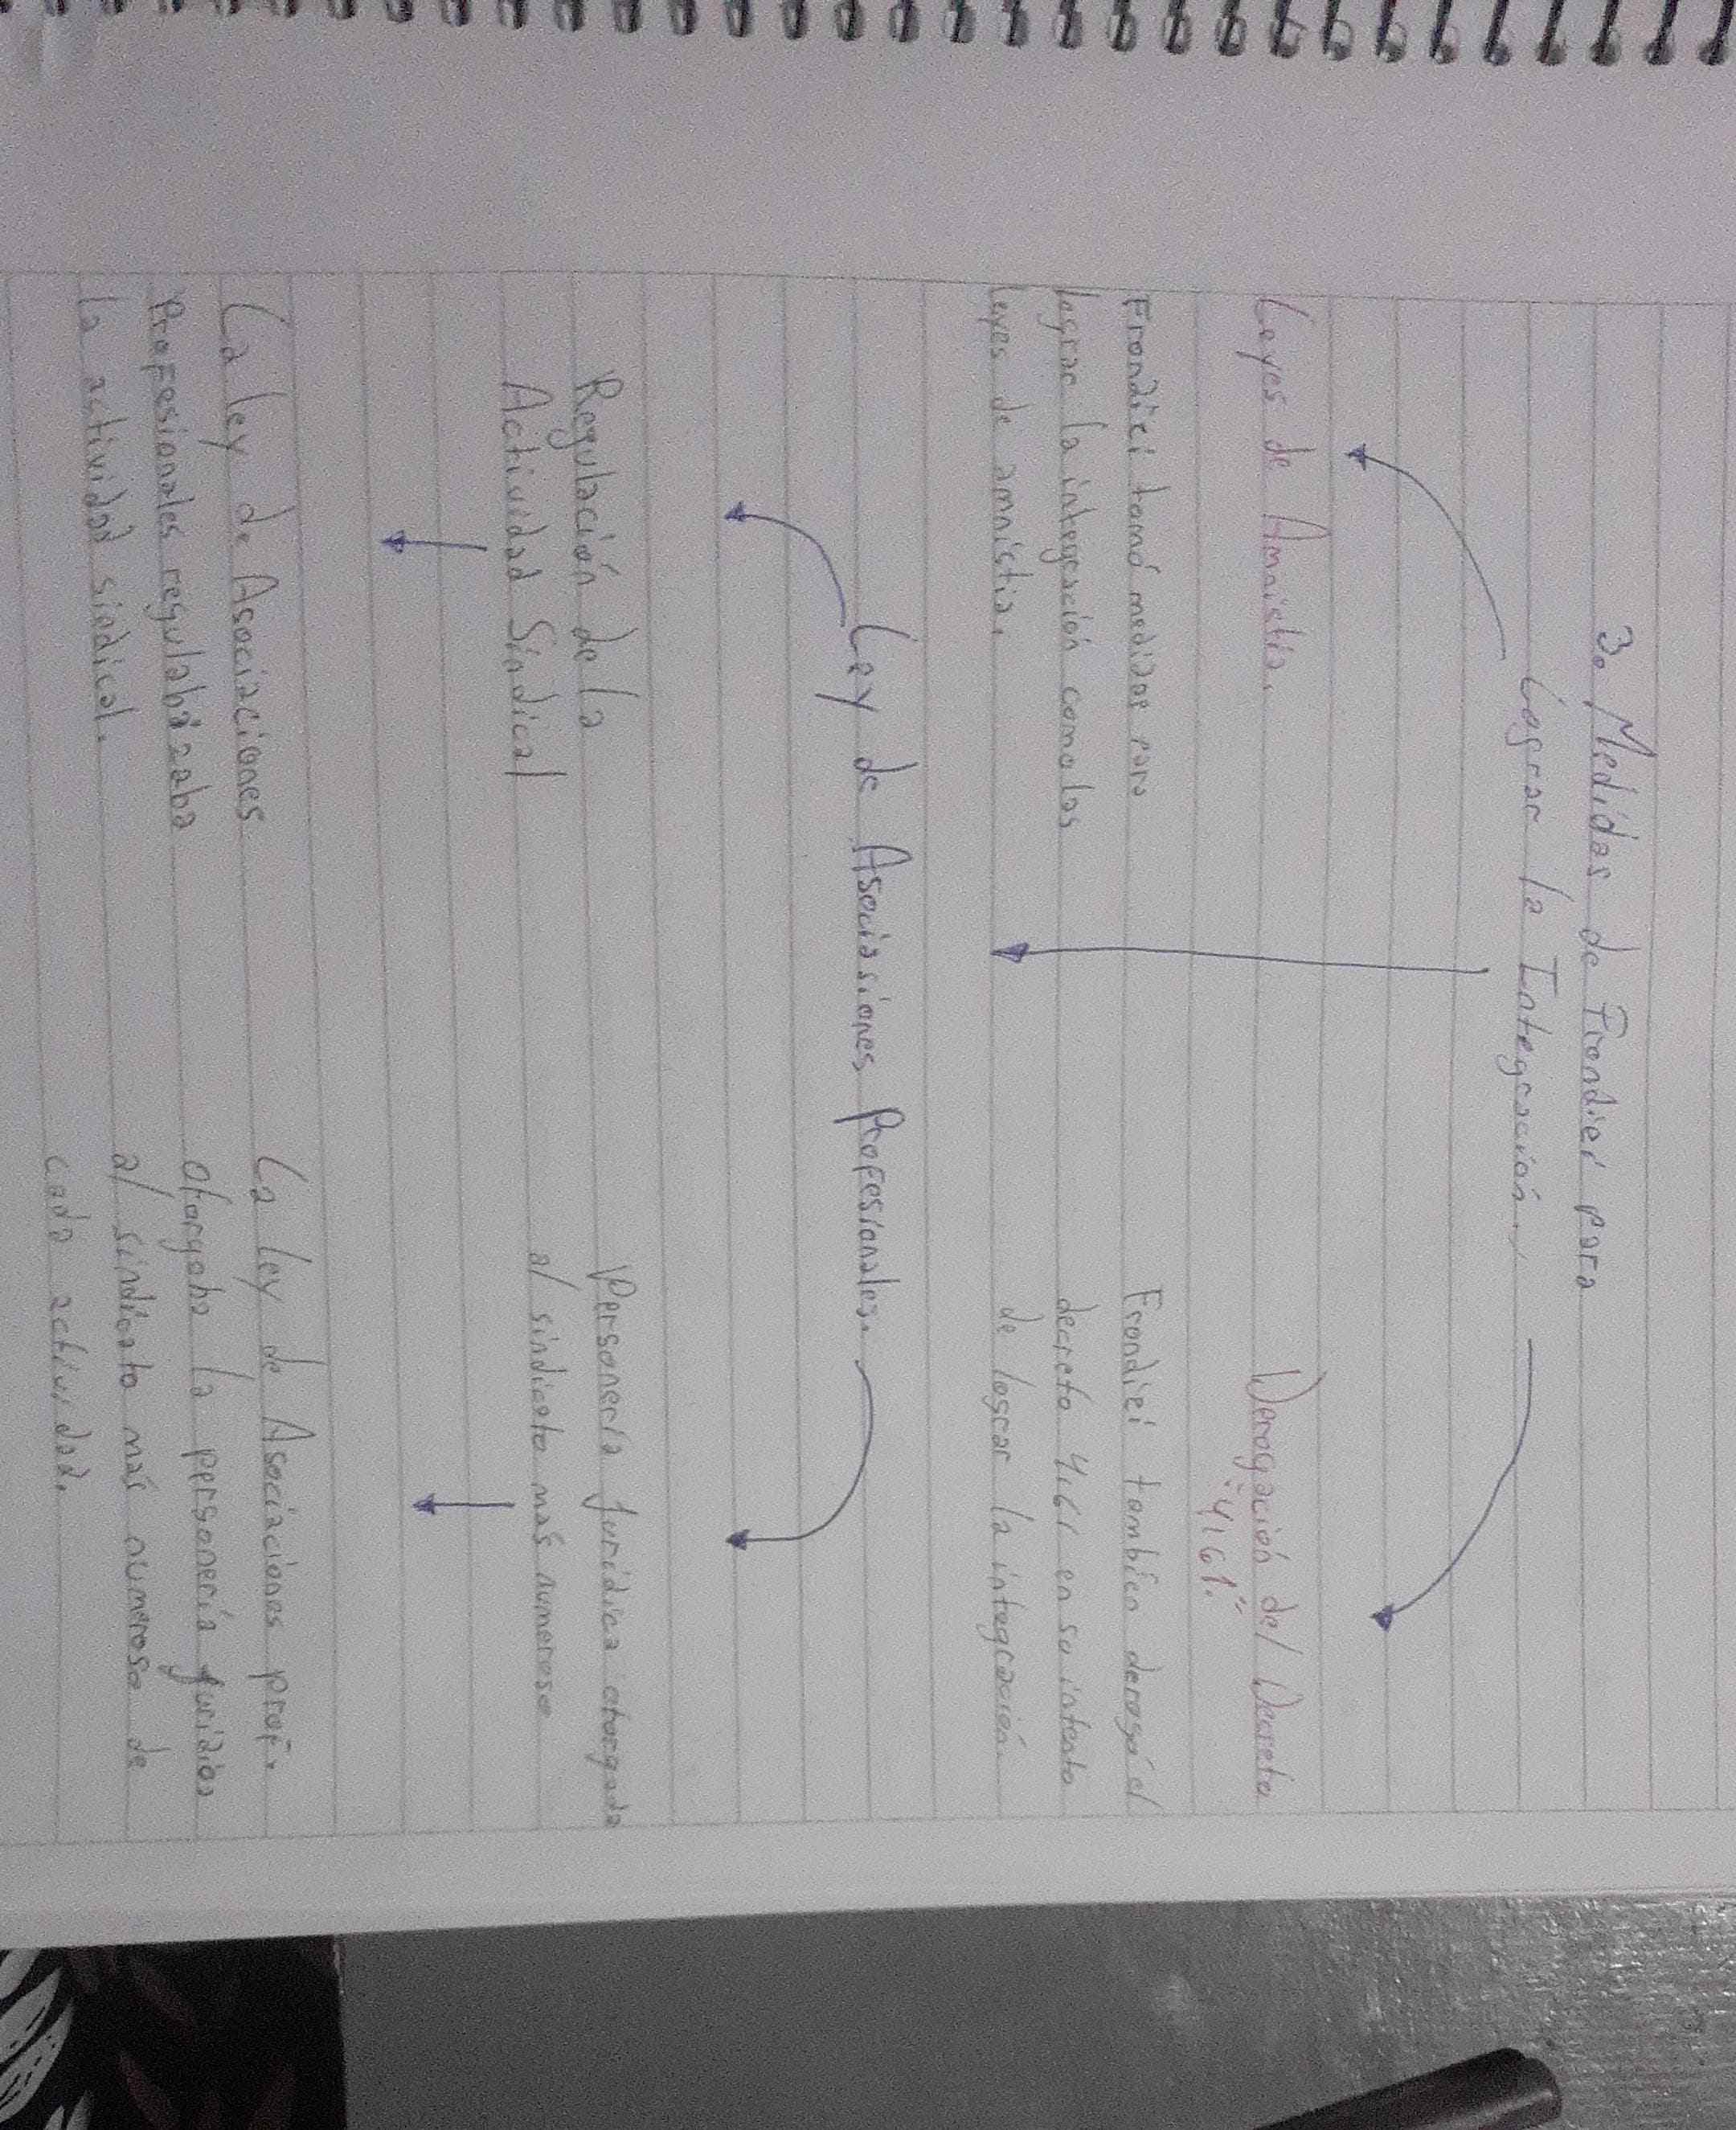 3. Medidas de Frondizi para
Lograr la Integración.
Leyes de Amnistia.
Frondizi tomó medidas para
lograr la integración como las
leyes de amnistia.
Derogación del Decreto
"4161."
Frondizi también derogó el
decreto 4161 en su intento
de lograr la integración.
Ley de Asociasiones Profesionales.
Regulación de la
Actividad Sindical
La ley de Asociaciones
Profesionales regulabazaba
la actividad sindical.
Personería jurídica otorgada
al sindicato más numeroso
La ley de Asociaciones prof.
otorgaba la personería jurídica
al sindicato más numeroso de
cada actividad.